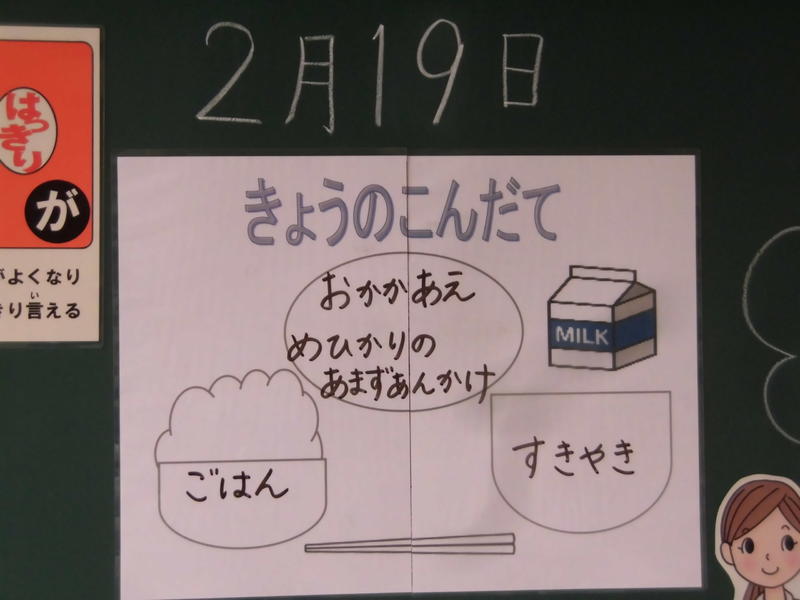 2月19日
はっきり
が
がよくなり
きり言える
い
きょうのこんだて
おかかあえ
めひかりの
あまずあんかけ
MILK
すきやき
ごはん